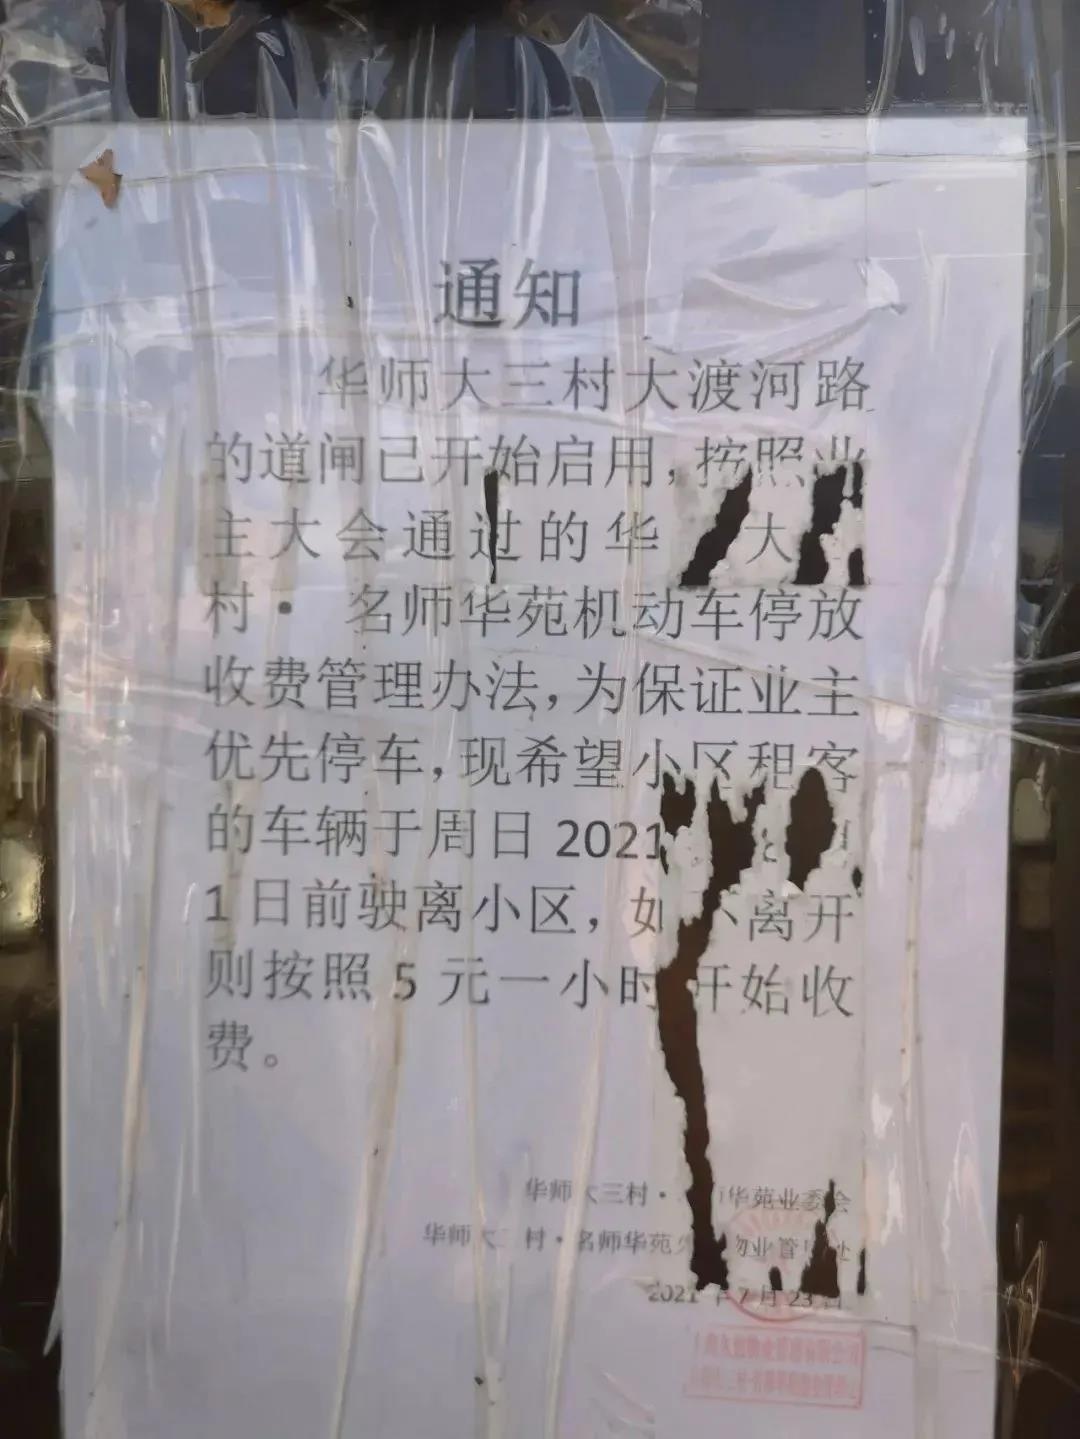 通知
华师大三村大渡河路
的道闸已开始启用,按照业
主大会通过的华 大
村· 名师华苑机动车停放
收费管理办法,为保证业主
优先停车,现希望小区租客
的车辆于周日 2021
1 日前驶离小区，如不离开
则按照 5 元一小时开始收
费。
华师大三村· 师华苑业委会
华师大 村·名师华苑 物业管理处
2021 年 7 月 23 日